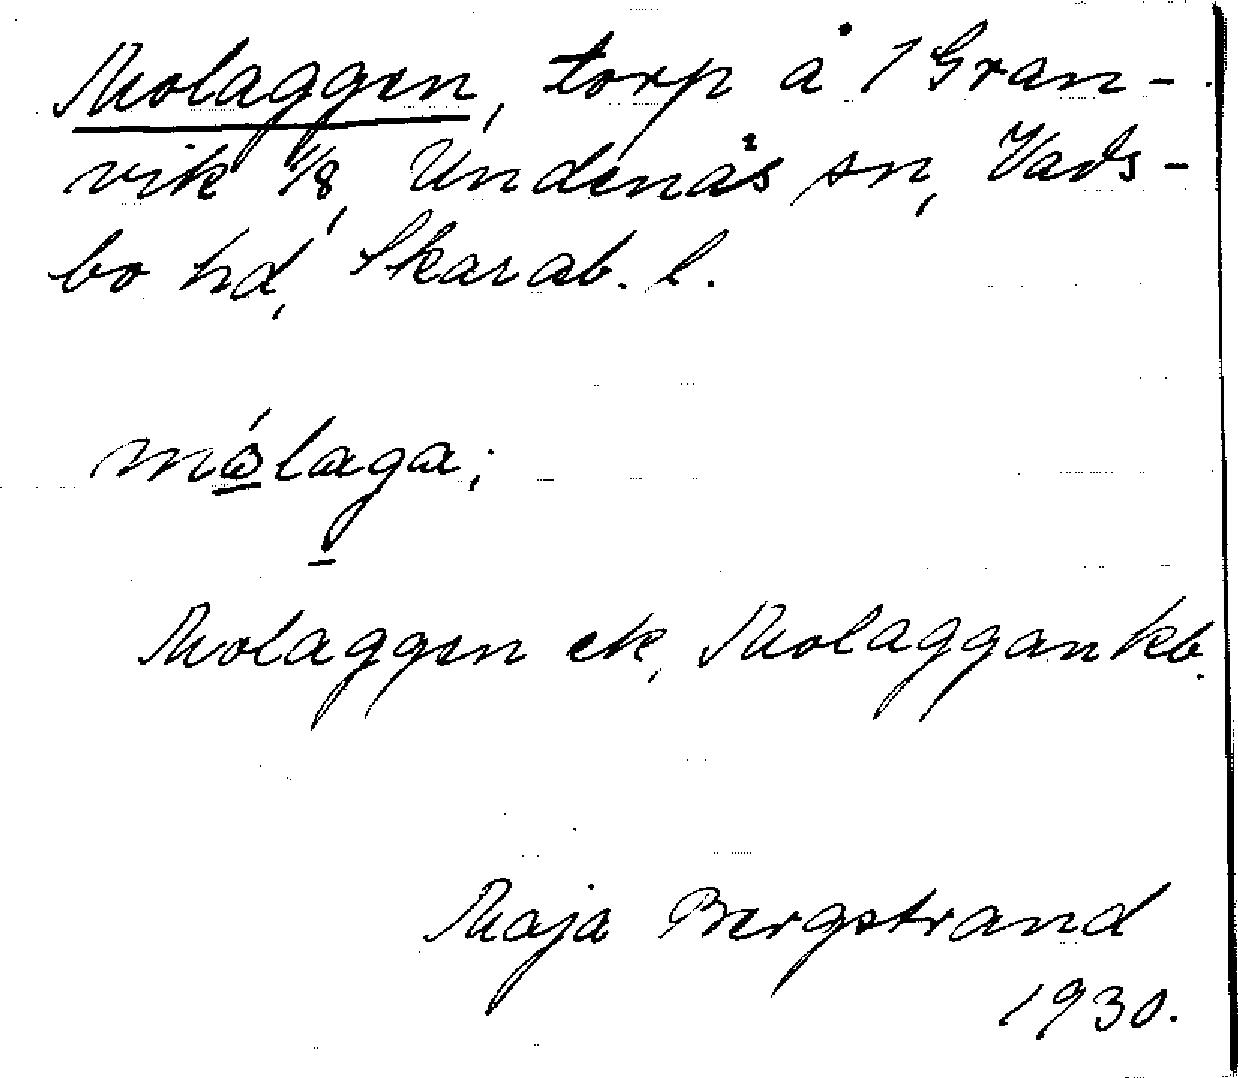 Molaggen, torp å 1 Gran-
vik 1/8, Undenäs sn, Vads-
bo hd, Skarab. l.
mólaga;
Molaggen ek, Molaggan kb.
Maja Bergstrand
1930.